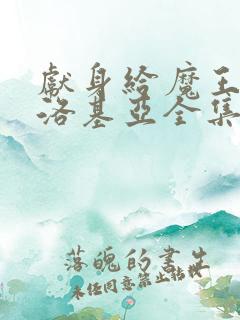 獻身給魔王
洛基亞全集
落魄的書生
未經同意禁止轉載